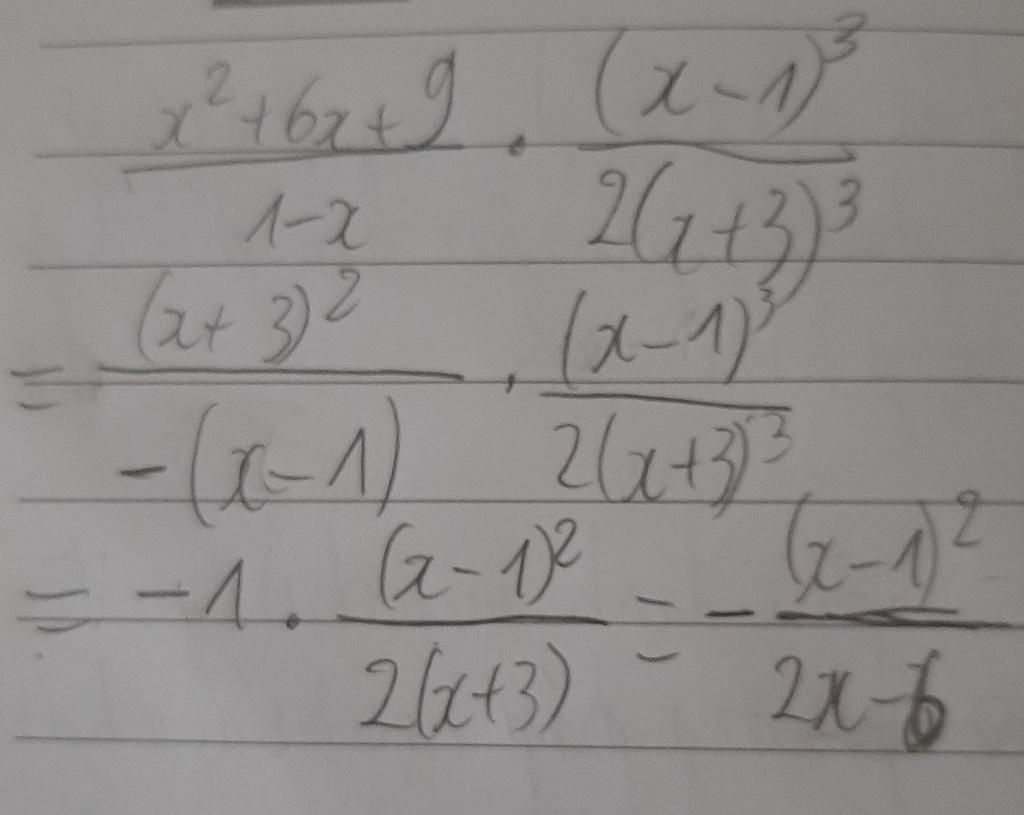 \frac{x^2+6x+9}{1-x} \cdot \frac{(x-1)^3}{2(x+3)^3}
= \frac{(x+3)^2}{-(x-1)} \cdot \frac{(x-1)^3}{2(x+3)^3}
= -1 \cdot \frac{(x-1)^2}{2(x+3)} = -\frac{(x-1)^2}{2x-6}